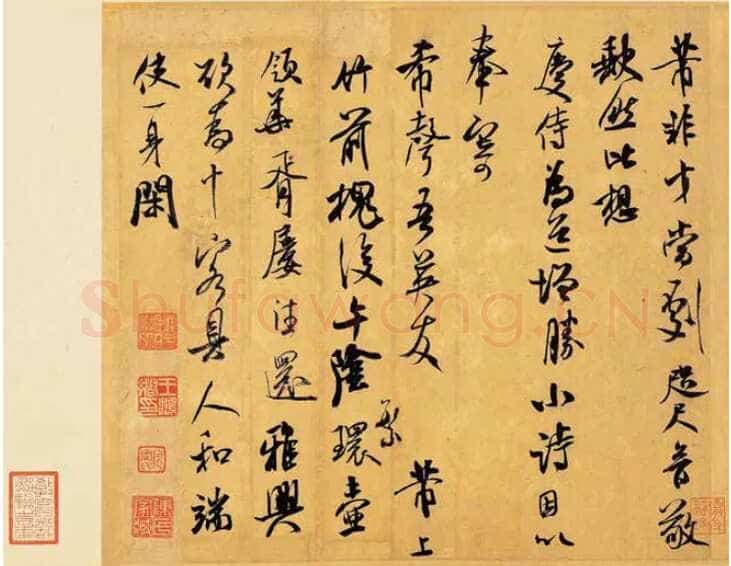 芾非才當劇咫尺音敬
缺然比想
慶侍為道增勝小詩因以
奉寄
希聲吾英友 芾上
竹前槐後午陰環繁壺
領華胥屢往還雅興
欲為十客具人和端
使一身閑
Shufawang.CN